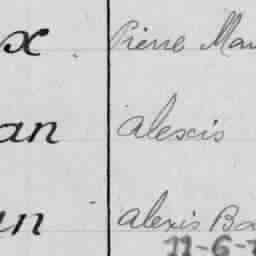 x Pierre Mau
an alexis
an alexis Ba
11-6-